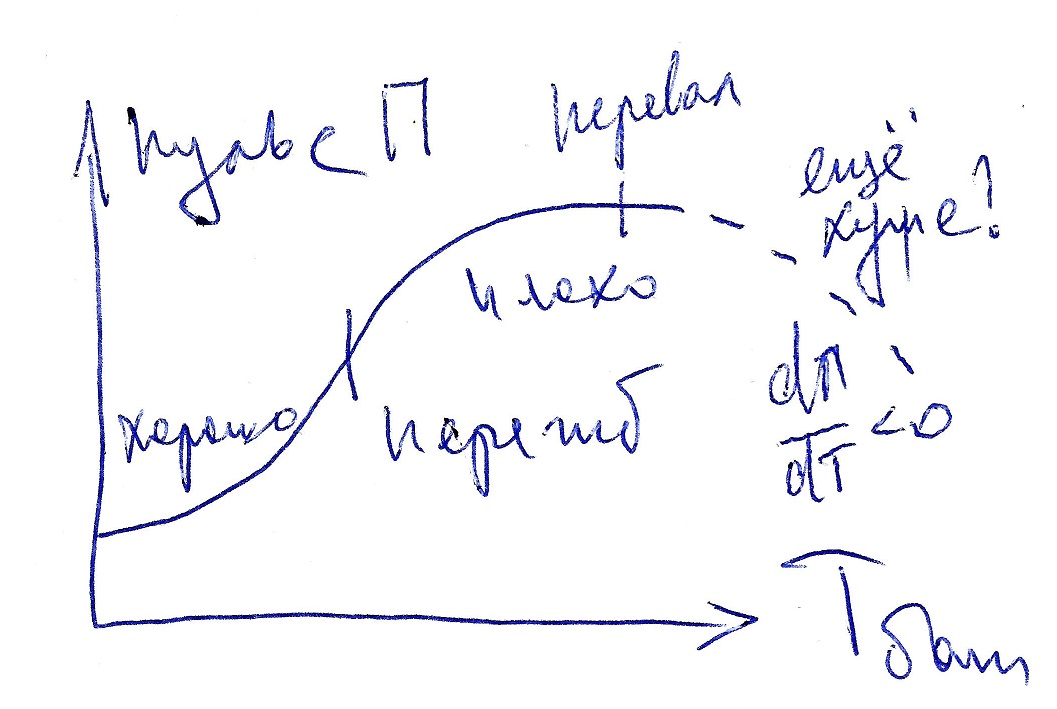 Пульс П
перевал
ещё
хуже!
плохо
хорошо
перегиб
dП
dT
<0
T бани